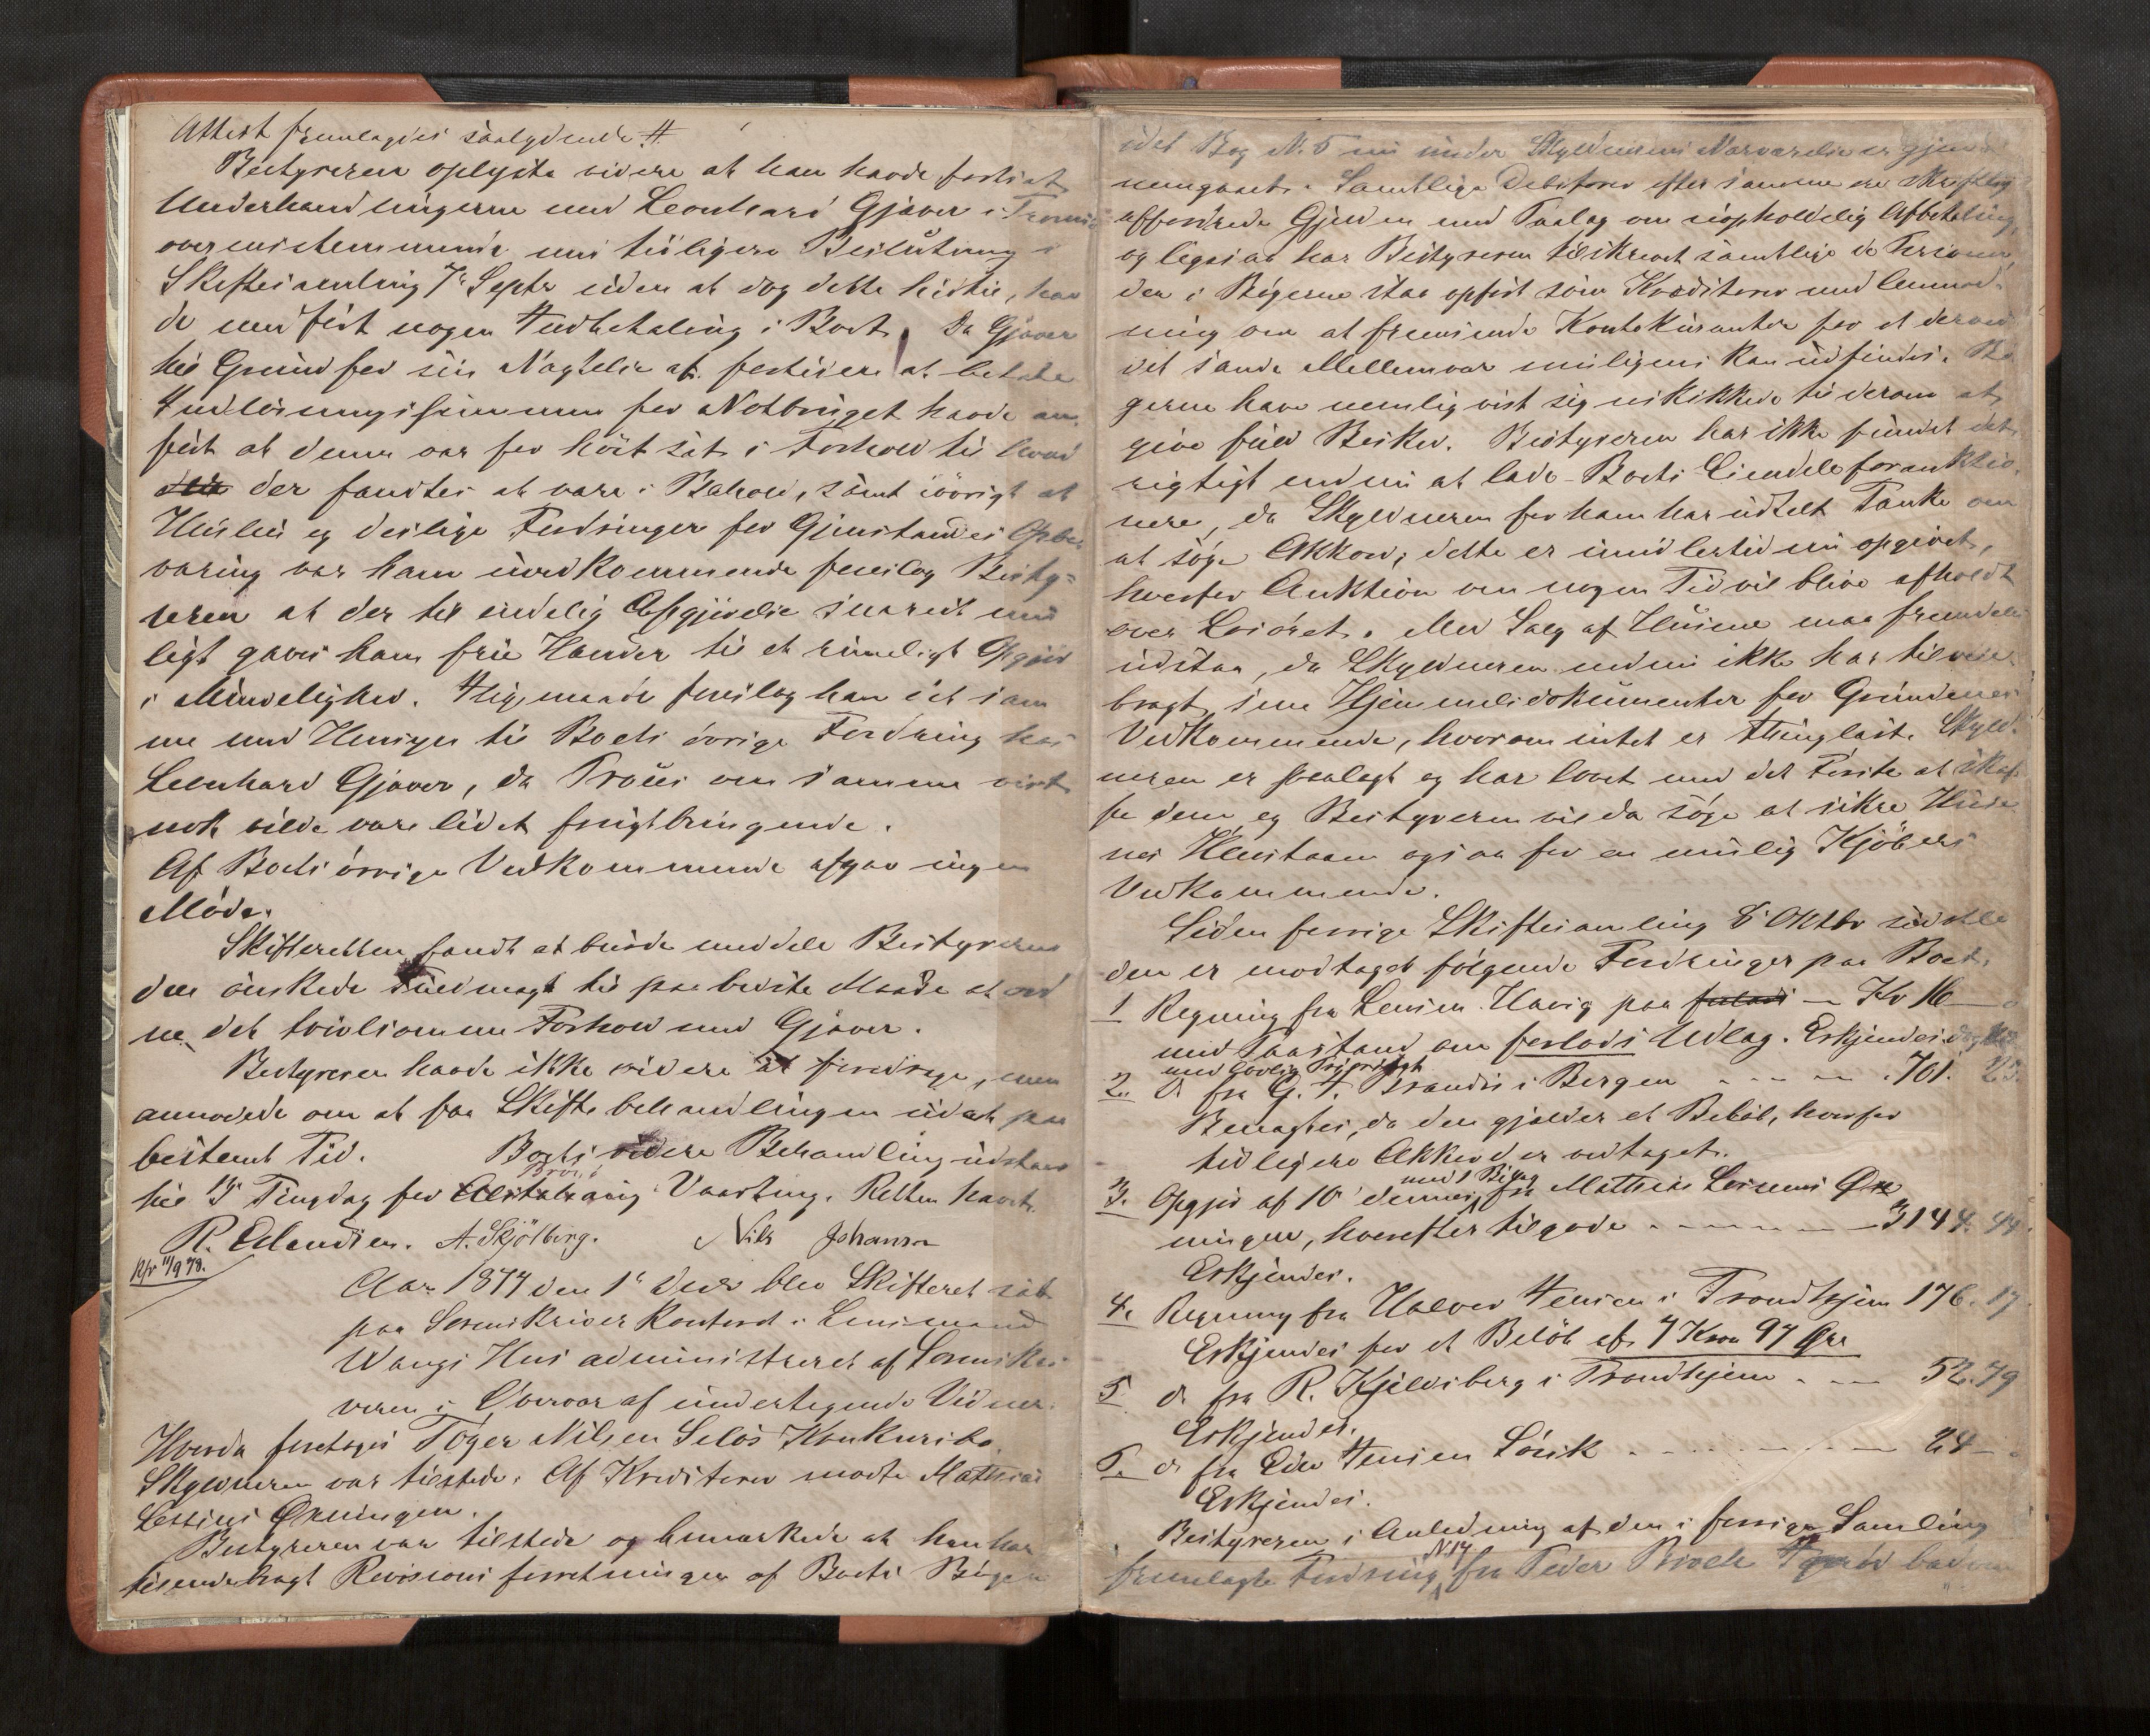 Attest fremlagdes saalydende #
Bestyreren oplyste videre at han havde fortsat
Underhandlingerne med Leonhard Gjæver i Tromsø
overensstemmende med tidligere Beslutning i
Skiftesamling 7de Septr uden at dog dette hidtil, hav
de medført nogen Indbetaling i Boet. Da Gjæver
til Grund for sin Nægtelse af at betale
Indløsningssummen for Notbruget havde an
ført at denne var for höit sat i Forhold til hvad
der fandtes at være i Behold, samt iövrigt at
Husleie og deslige Fordringer for Gjenstandes Opbe
varing var ham uvedkommende foreslog Besty-
reren at der til endelig Afgjörelse snarest mu
ligt gaves ham frie Hænder til et rimeligt Opgjør
i Mindelighed. Ligemaade foreslog han det sam
me med Hensyn til Boets övrige Fordring hos
Leonhard Gjæver, da Proces om samme vist
nok vilde være lidet frugtbringende.
Af Boets övrige Vedkommende afgav ingen
Möde.
Skifteretten fandt at burde meddele Bestyreren
den önskede Fuldmagt til paa bedste Maade at ord
ne det tvivlsomme Forhold med Gjæver.
Bestyreren havde ikke videre at foredrage, men
anmodede om at faa Skiftebehandlingen udsat paa
bestemt Tid. Boets videre Behandling udstaar
til 1ste Tingdag for Brönö Vaarting. Retten hævet.
R. Erlandsen. A. Skjölberg. Nils Johanson
Kfr 11/9 78.
Aar 1877 den 1ste Decbr blev Skifteret sat
paa Sorenskriverkontoret i Lensmand
Wangs Hus administreret af Sorenskri
veren i Overvær af undertegnede Vidner.
Hvorda foretoges Töger Nilsen Selös Konkursbo.
Skyldneren var tilstede. Af Kreditorer mødte Mathias
Lassens Økningen.
Bestyreren var tilstede og bemærkede at han har
tilendebragt Revisionsforretningen af Boets Böger
idet Bog No. 5 nu under Skyldnerens Nærværelse er gjen
nemgaaet. Samtlige Debitorer efter samme ere skriftlig
affordrede Gjelden med Paalæg om uopholdelig Afbetaling,
og ligesaa har Bestyreren tilskrevet samtlige de Personer
der i Bögerne staa opført som Kreditorer med Anmod-
ning om at fremsende Kontokuranter for at derved
det sande Mellemvær muligens kan udfindes. Bö
gerne have nemlig vist sig uskikkede til derom at
give fuld Besked. Bestyreren har ikke fundet det
rigtigt endnu at lade Boets Eiendele forauktio
nere, da Skyldneren for ham har udtalt Tanke om
at söge Akkord; dette er imidlertid nu opgivet,
hvorfor Auktion om nogen Tid vil blive afholdt
over Lösöret. Med Salg af Husene maa fremdeles
udstaa, da Skyldneren endnu ikke har tilveie
bragt sine Hjemmelsdokumenter for Grundenes
Vedkommende, hvorom intet er thinglæst. Skyld-
neren er paalagt og har lovet med det Første at skaf
fe dem og Bestyreren vil da söge at sikre Huse
nes Henstaaen ogsaa for en mulig Kjöbers
Vedkommende.
Siden forrige Skiftesamling 8de Oktbr sidstle
den er modtaget følgende Fordringer paa Boet.
1 Regning fra Lensm. Havig paa – Kr 16 –
med Paastand om forlods Udlæg. Erkjendes dog
2. do fra G. F. Brandis i Bergen - - - - 701. 25.
Benægtes, da den gjælder et Belöb, hvorfor
tidligere Akkord er vedtaget.
3. Opgjør af 10de dennes med 1 Bilag fra Mathias Lassens Øk
ningen, hvorefter tilgode - - - - - - 3144. 44.
Erkjendes.
4. Regning fra Halvor Jensen i Trondhjem 176. 17
Erkjendes for et Belöb af 7 Kron 97 Øre
5 do fra R. Kjeldsberg i Trondhjem - - - 52.79
Erkjendes.
6. do fra Edw Jensen Sörvik - - - - - - 24 –
Erkjendes.
Bestyreren i Anledning af den i forrige Samling
fremlagte Fordring No 14 fra Peder bad om